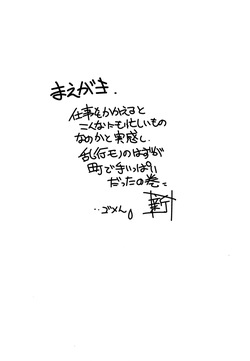 まえがき.
仕事をかかえると
こんなにも忙しいもの
なのかと実感し.
乱行モノのはずが
町で手いっぱい
だったの巻。
‥ゴメん。